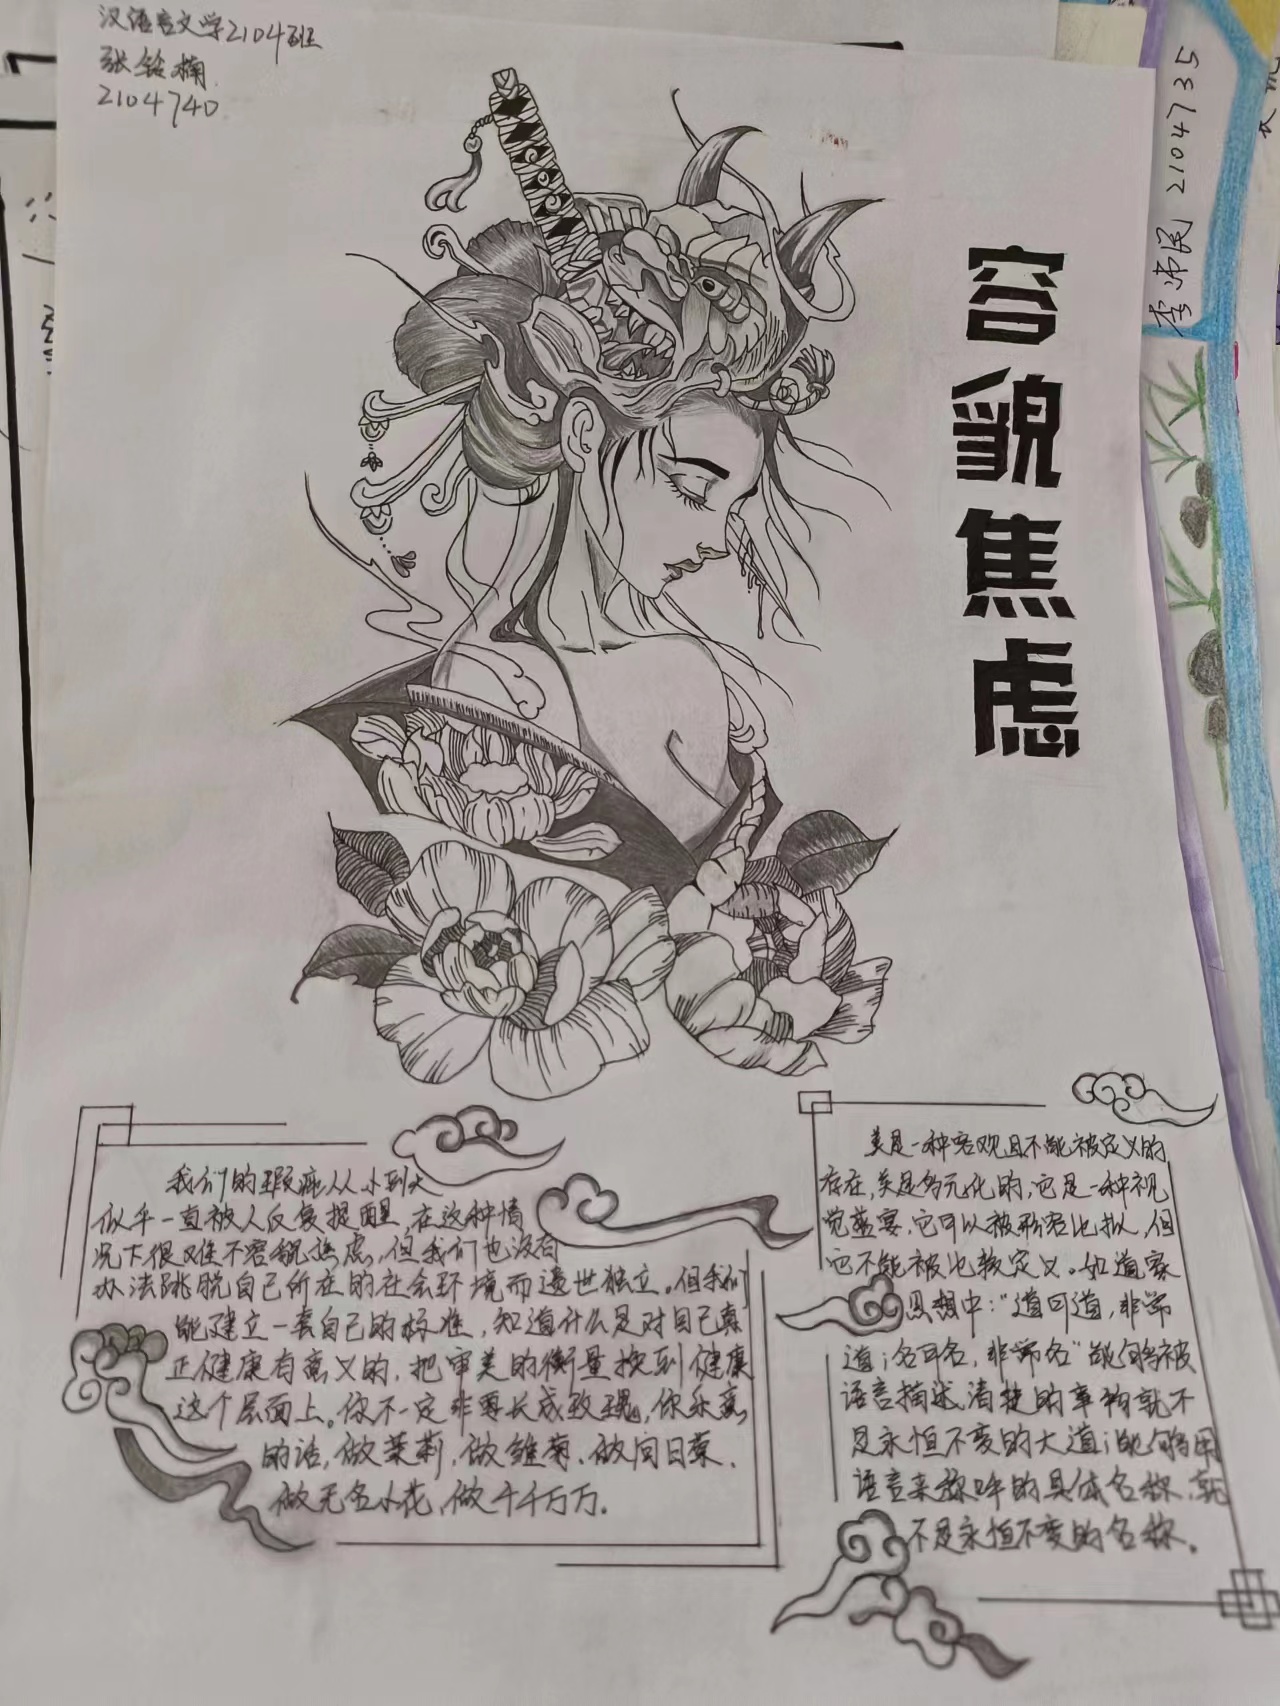 汉语言文学2104班
张铭楠
2104740
李沛民 2104735
容貌焦虑
我们的瑕疵从小到大
似乎一直被人反复提醒,在这种情
况下很难不容貌焦虑,但我们也没有
办法跳脱自己所在的社会环境而遗世独立。但我们
能建立一套自己的标准,知道什么是对自己真
正健康有意义的,把审美的衡量换到健康
这个层面上。你不一定非要长成玫瑰,你乐意
的话,做茉莉,做雏菊,做向日葵,
做无名小花,做千千万万。
美是一种客观且不能被定义的
存在,美是多元化的,它是一种视
觉盛宴,它可以被形容比拟,但
它不能被比较定义。如道家
思想中:“道可道,非常
道;名可名,非常名”能够被
语言描述清楚的事物就不
是永恒不变的大道;能够用
语言来称呼的具体名称,就
不是永恒不变的名称。